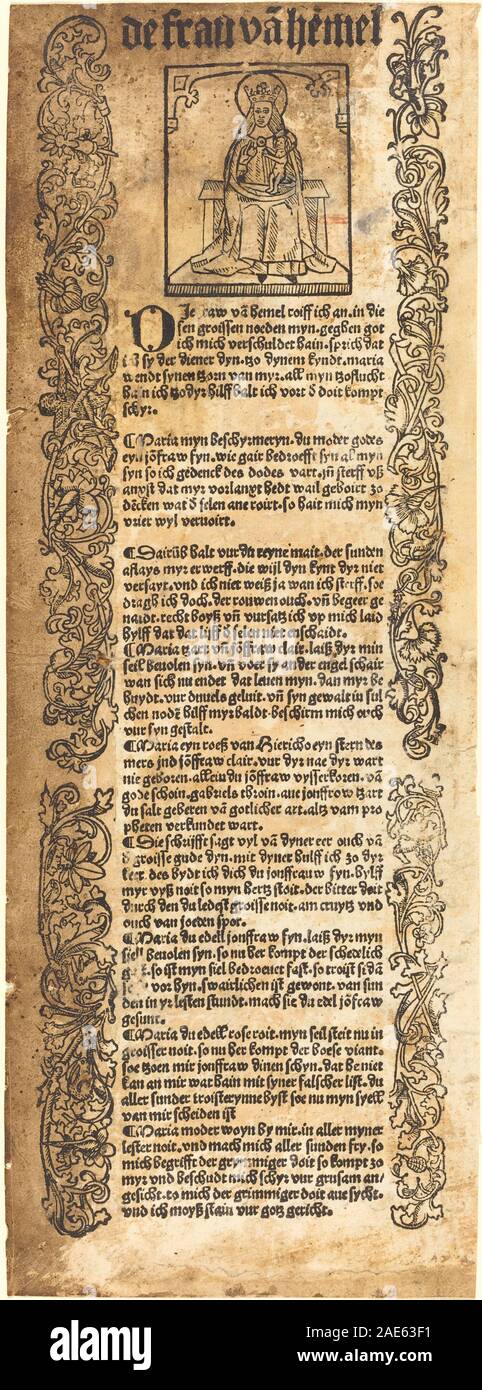 de frau vã hẽmel
O Je raw vã hemel roiff ich an. in die
sen groissen noeden myn. gegben got
ich mich verschuldet hain. sprich dat
ich sy der diener dyn. tzo dynem kyndt. maria
wendt synen tzorn van myr. all myn tzoflucht
hain ich tzo dyr hilff balt ich vort d doit kompt
schyr.
¶ Maria myn beschyrmeryn. du moder godes
eyn jõfraw fyn. wie gair bedroefft syn al myn
syn so ich gedenck des dodes vart. jñ sterff vß
anxst dat myr vorlanxt hedt wail geboirt zo
dẽcken wat d selen ane roirt. so hait mich myn
vrier wyl veruoirt.
¶ Dairũb balt vur du reyne mait. der sunden
aflays myr erwerff. die wijl dyn kynt dyr niet
versayt. vnd ich niet weiß ja wan ich sterff. soe
dragh ich doch. der rouwen ouch. vñ begeer ge
naidt. recht boyß vñ vursatz ich vp mich laid
hylff dat dat lijff d selen niet enschaidt.
¶ Maria tzart vñ jõffraw clair. laiß dyr min
seil beuolen syn. vñ voer sy an der engel schair
wan sich nu endet dat leuen myn. dan myr be
huydt. vur duuels geluit. vñ syn gewalt in sul
chen nodẽ hilff myr baldt. beschirm mich ouch
vur syn gestalt.
¶ Maria eyn roeß van Hiericho eyn stern des
mers jnd jõffraw clair. vur dyr nae dyr wart
nie geboren. allein du jõffraw vysserkoren. vã
gode schoin. gabriels throin. aue jonffrow tzart
du salt geberen vã gotlicher art. altz vam pro
pheten verkundet wart.
¶ Die schrijfft sagt vyl vã dyner eer ouch vã
d groisse gude dyn. mit dyner hulff ich zo dyr
keer. des bydt ich dich du jonffrauw fyn. hylff
myr vyß noit so myn hertz stoit. der bitter doit
durch den du ledest groisse noit. am cruytz vnd
ouch van joeden spot.
¶ Maria du edell jonffraw fyn. laiß dyr myn
siell beuolen syn. so nu her kompt der schedlich
so ist myn siel bedroeuet fast. so troist se dã
vor hyn. swairlichen ist gewont. van sun
den in yr lesten stundt. mach sie du edel jõfraw
gesunt.
¶ Maria du edell rose roit. myn seil steit nu in
groisser noit. so nu her kompt der boese viant.
soe tzoen mir jonffraw dinen schyn. dat he niet
kan an mir wat hain mit syner falscher list. du
aller sunder troisterynne byst soe nu myn syell
van mir scheiden ist
¶ Maria moder woyn by mir. in aller myner
lester noit. vnd mach mich aller sunden fry. so
mich begrifft der grymmiger doit so kompt zo
myr vnd beschudt mich schyr vur grusam an/
gesicht. to mich der grimmiger doit aue sycht.
vnd ich moyß stain vur gotz gericht.
alamy
Image ID: 2AE63F1
www.alamy.com